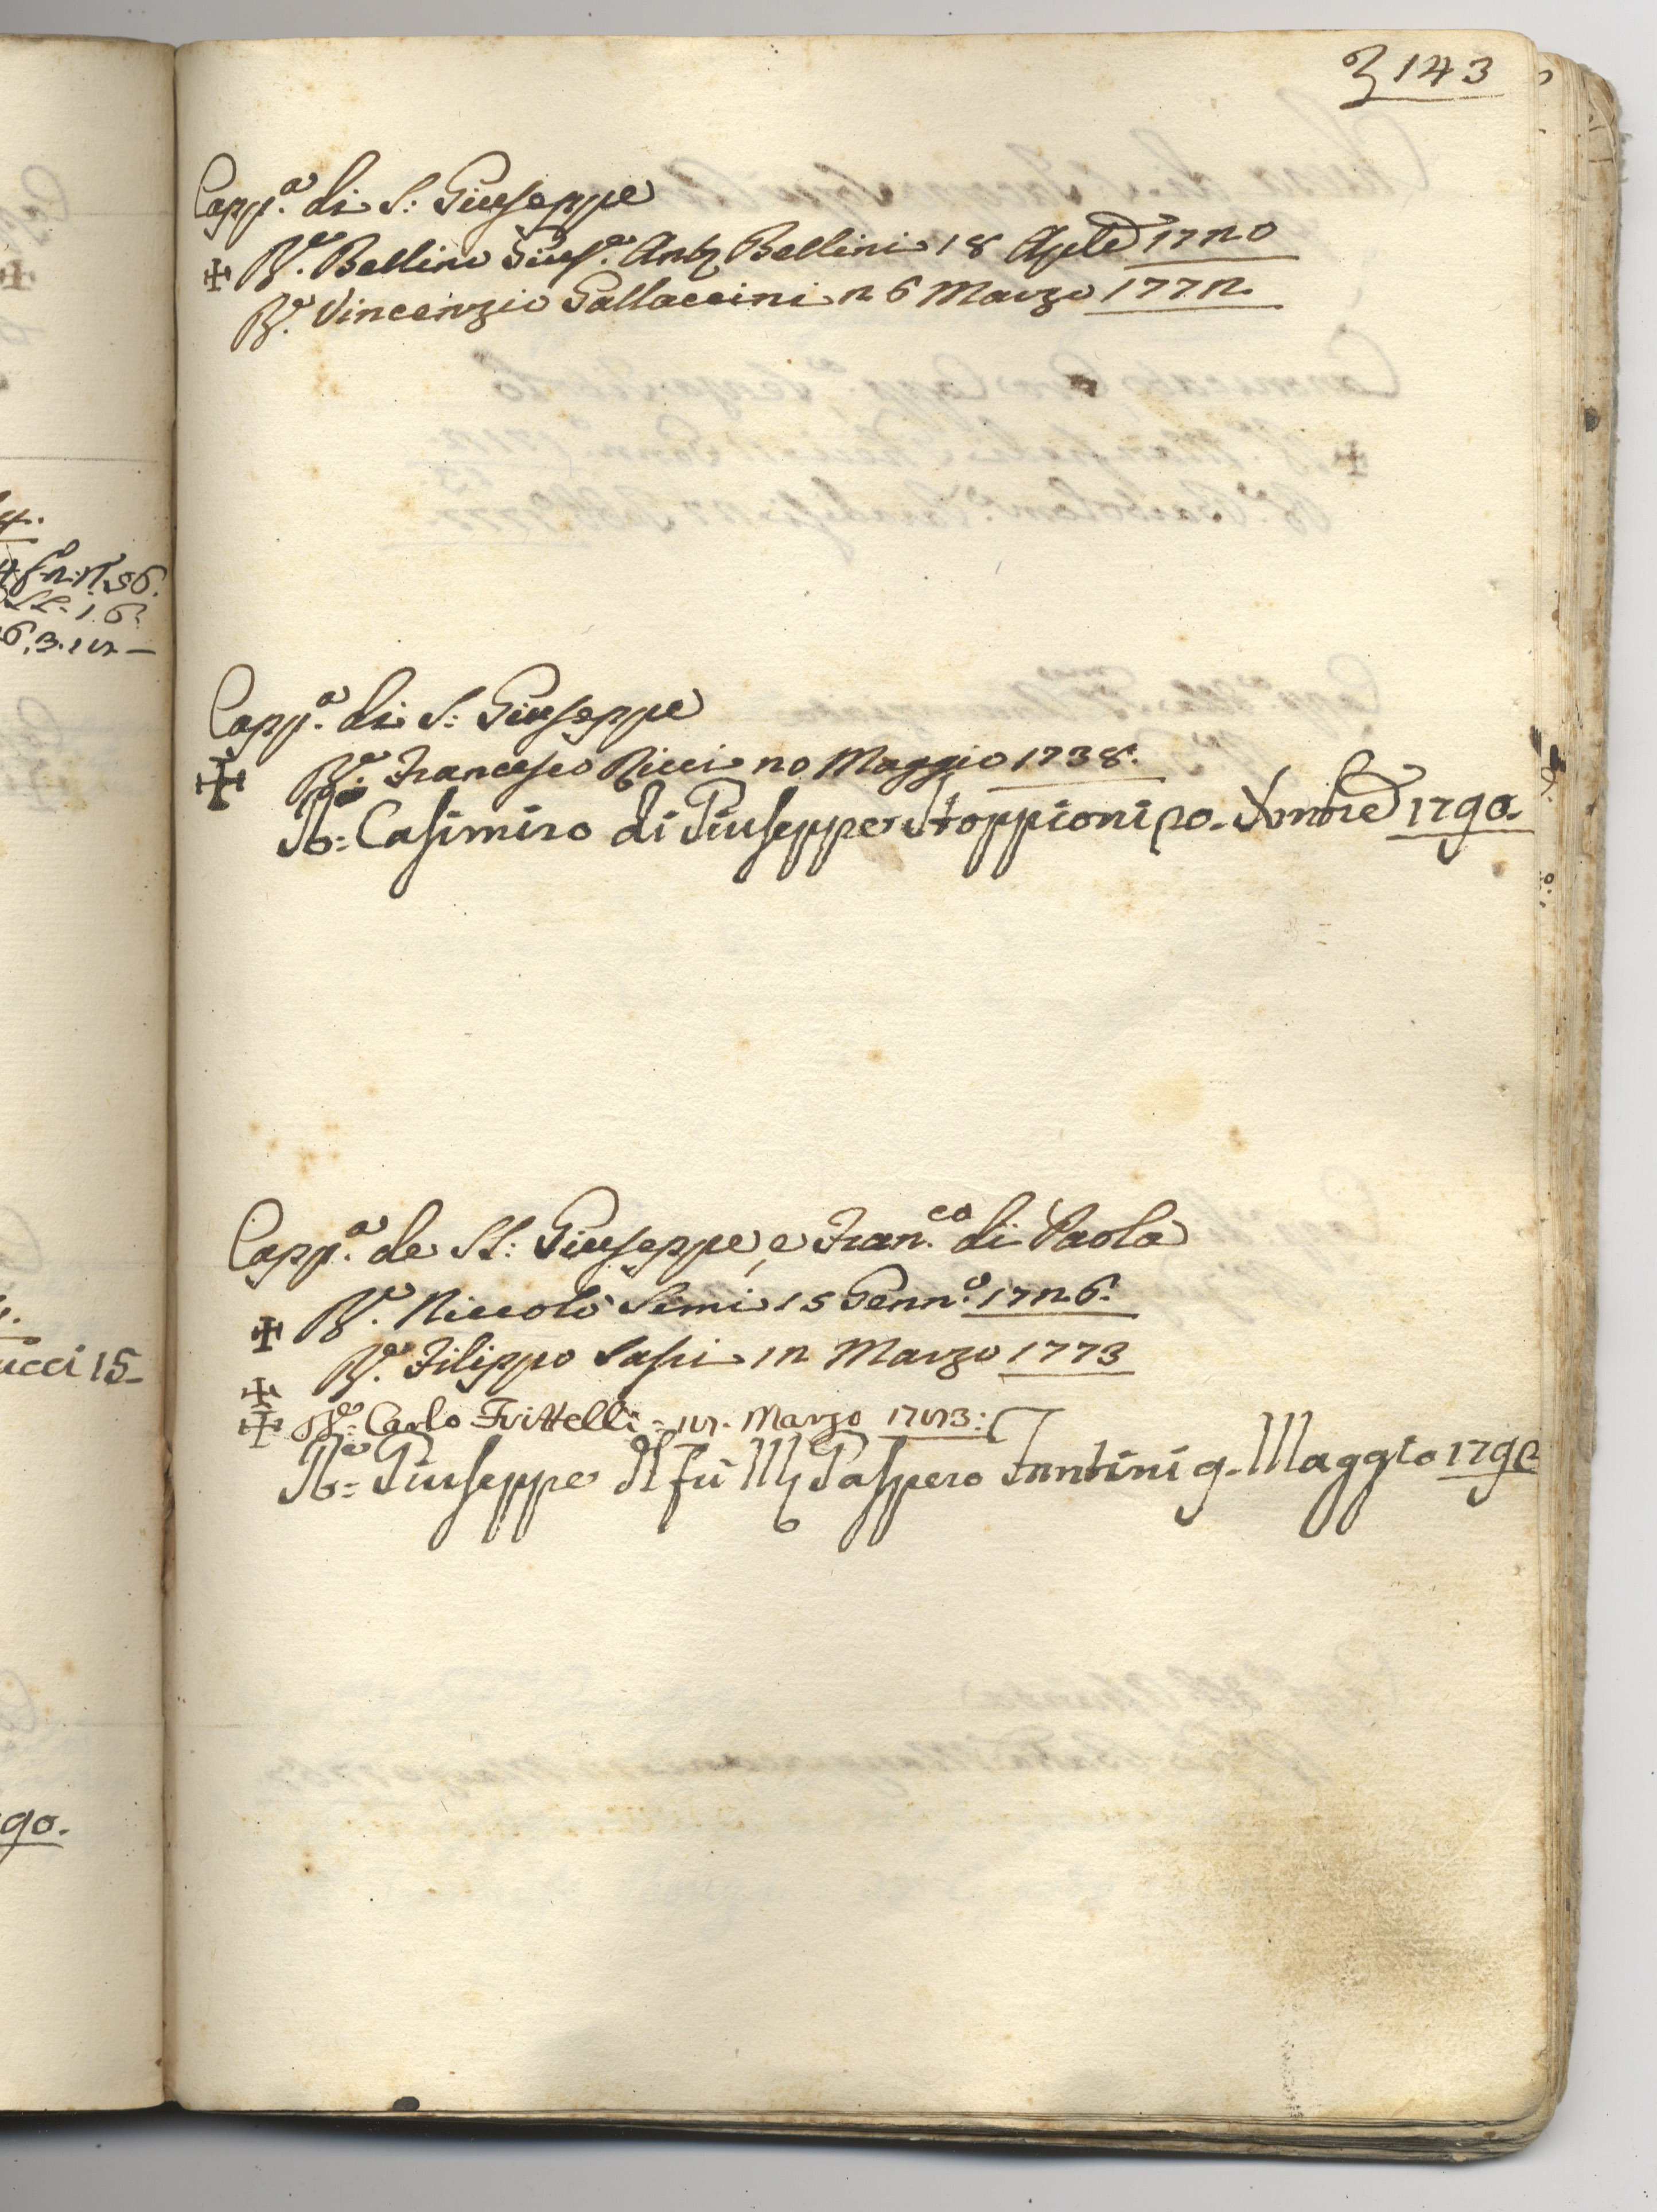 143
Capp.a di S: Giuseppe
R.e Bellino Gius.e Ant. Bellini 18 Aple 1720
R.e Vincenzio Gallaccini 26 Marzo 1772.
Capp.a di S: Giuseppe
R.e Francesco Ricci 20 Maggio 1738.
R.e Casimiro di Giuseppe Stoppioni 20. Xmbre 1790.
Capp.a de SS: Giuseppe, e Fran.co di Paola
R.e Niccolò Semi 15 Genn.o 1726.
R.e Filippo Sassi 12 Marzo 1773
R.e Carlo Frittelli = Marzo
R.e Giuseppe del fù Gaspero Tantini 9. Maggio 179
4.
56.
ucci 15-
90.